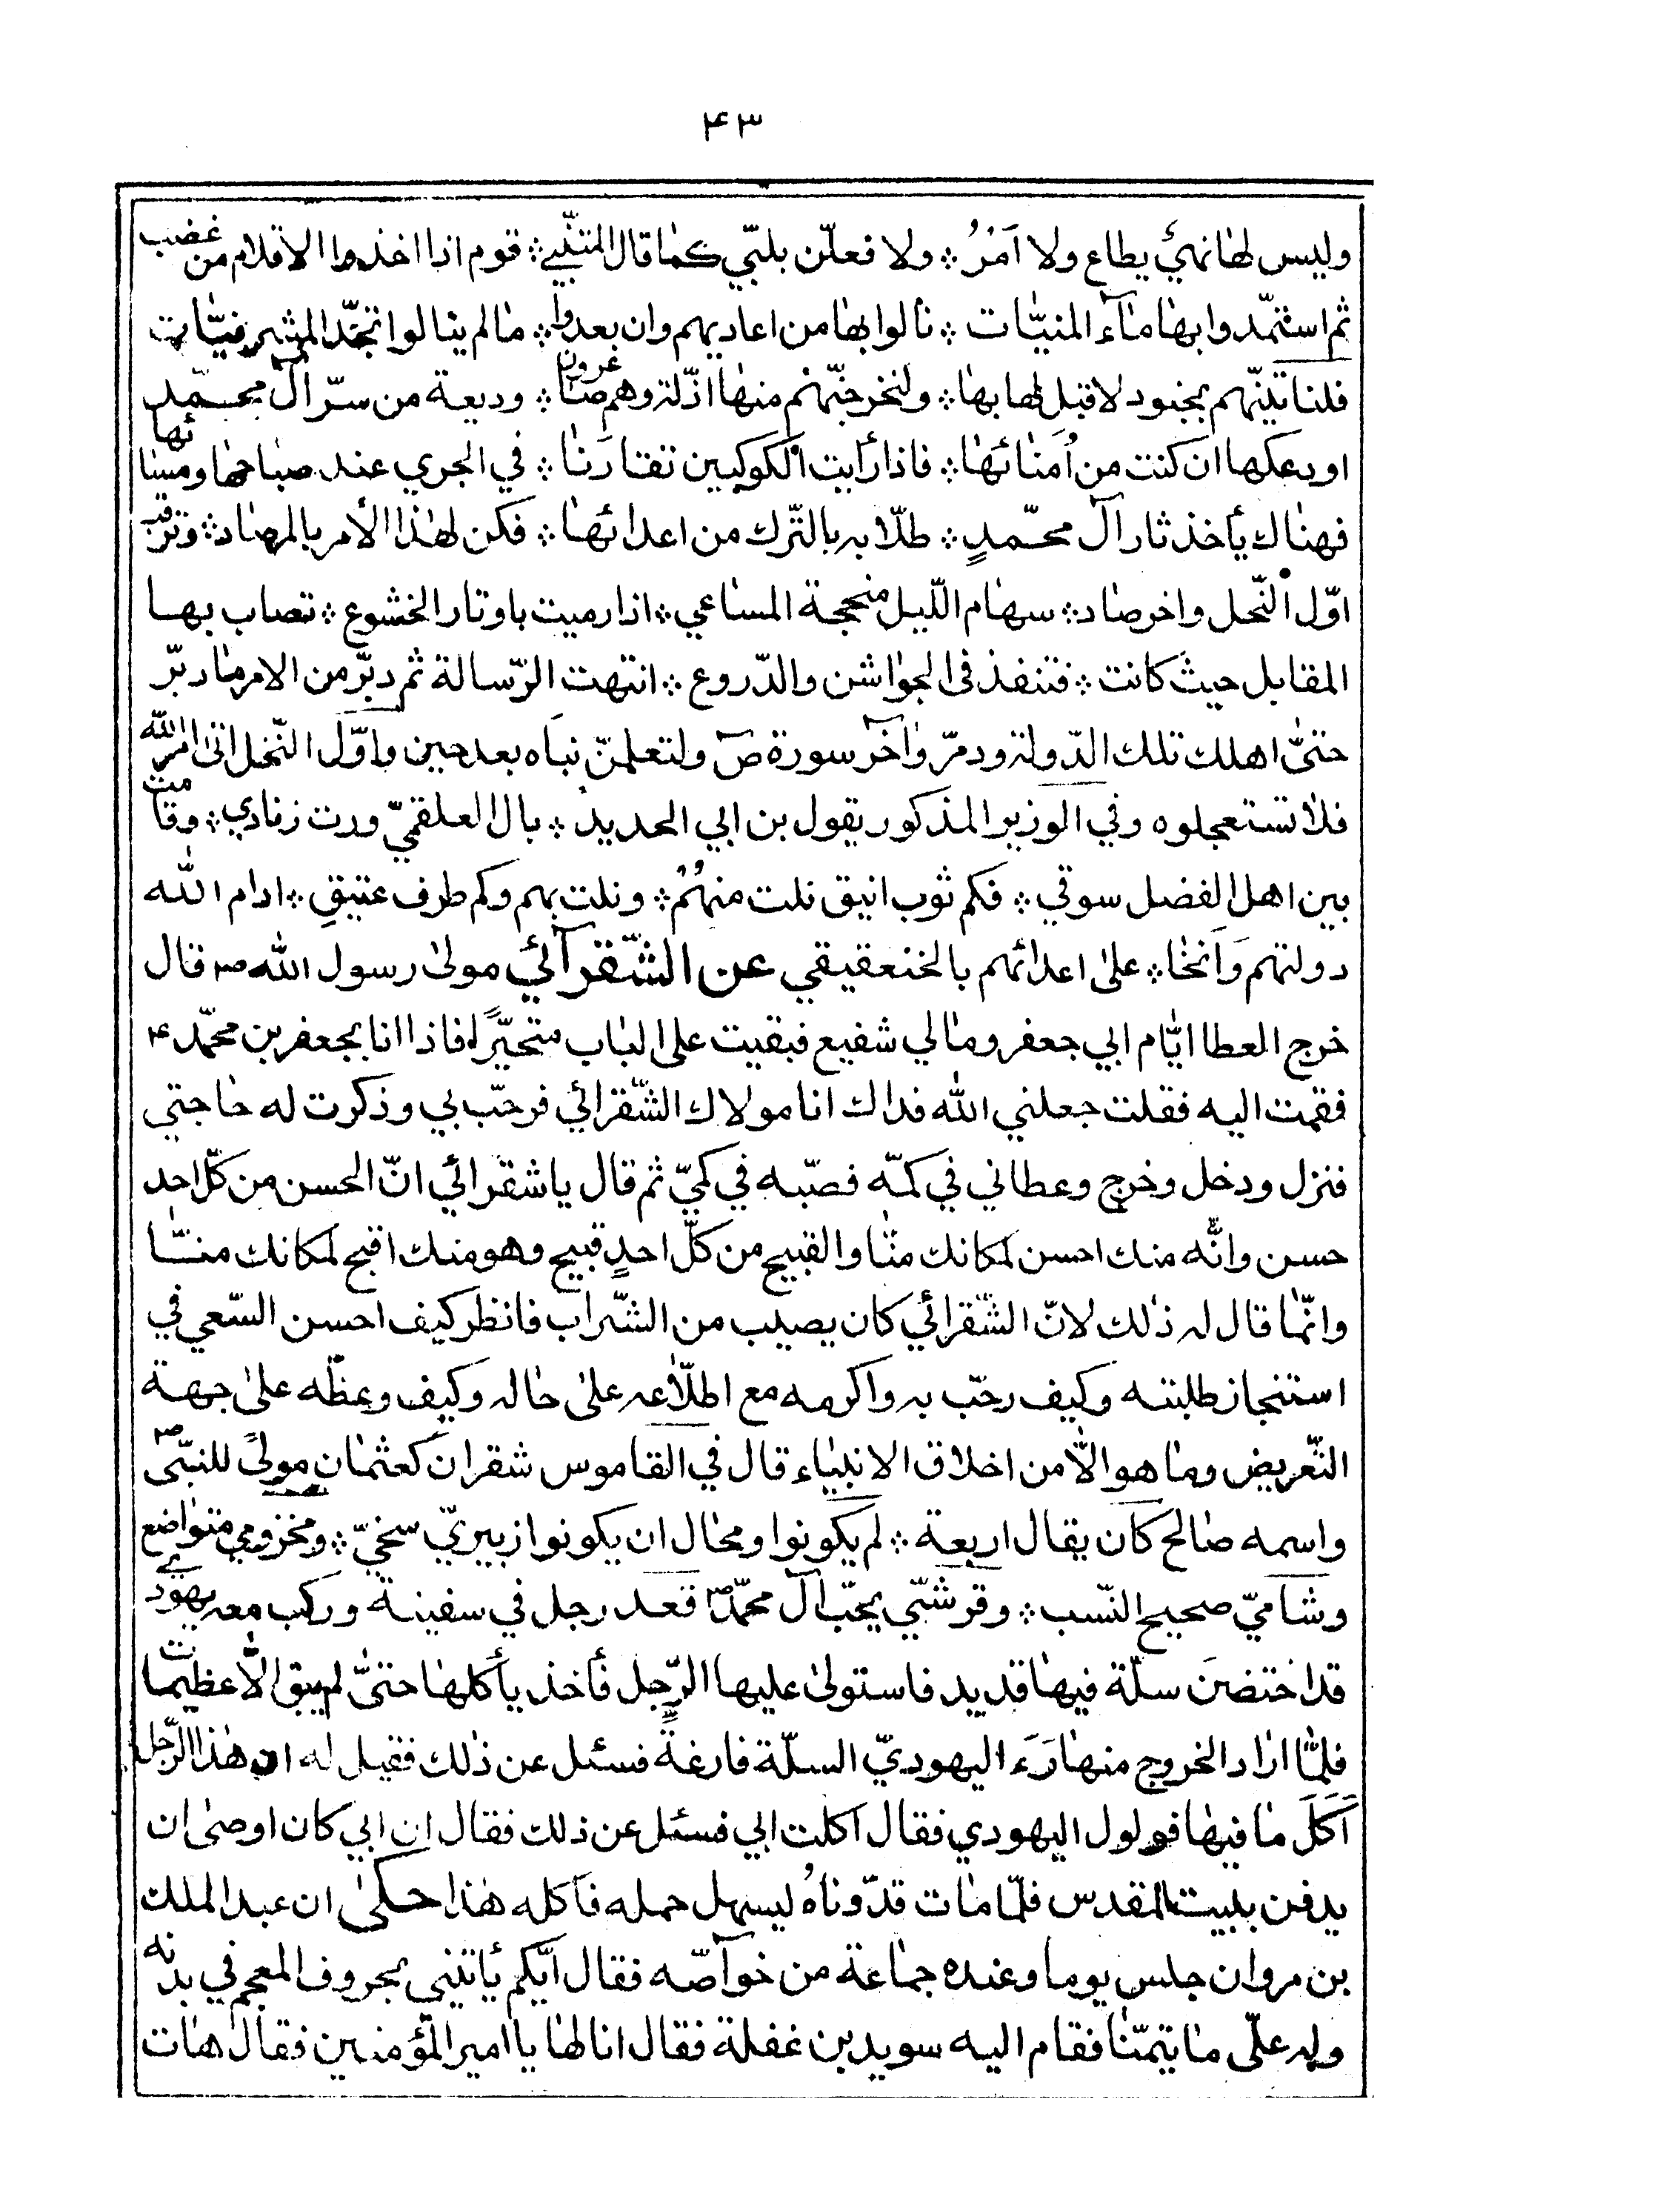 ۴۳
وليس لها نهيٌ يطاع ولا اَمْرُ ؞ ولا فعلّن بلبّي كما قال المتنبّي ؞ قوم اذا اخذوا الاقلام من غضب
ثم استمّدوا بها مآء المنيّات ؞ نالوا بها من اعاديهم وان بعدوا ؞ ما لم ينالوا بحّد المشرفيّات
فلنأتينّهم بجنود لا قبل لها بها ؞ ولنخرجنّهم منها اذلّة وهم صاغرون ؞ وديعة من سرّ آل محمّد
اودعكها ان كنت من اُمَنائها ؞ فاذا رأيت الكوكبين تقارَنا ؞ في الجري عند صباحها ومسائها
فهناك يأخذ ثار آل محمّدٍ ؞ طلّابه بالترّك من اعدائها ؞ فكن لهذا الأمر بالمرصاد ؞ وترقّب
اوّل النّحل واخر صاد ؞ سهام اللّيل منحجة المساعي ؞ اذا رميت باوتار الخشوع ؞ تصاب بها
المقابل حيث كانت ؞ فتنفذ في الجواشن والدّروع ؞ انتهت الرّسالة ثم دبّر من الامر ما دبّر
حتىّ اهلك تلك الدّولة ودمرّ وآخر سورة صٓ ولتعلمنّ نباَه بعد حين واوّل النّحل اتىٰ امر اللّه
فلا تستعجلوه وفي الوزير المذكور يقول بن ابي الحديد ؞ بال العلقميّ ورت زنادي ؞ وقامت
بين اهل الفضل سوقي ؞ فكم ثوب انيق نلت منهُمُ ؞ ونلت بهم وكم طرف عتيقِ ؞ ادام اللّه
دولتهم وَاَنخا ؞ علىٰ اعدائهم بالخنعقيقي عن الشّقرآئي مولىٰ رسول اللّه ص قال
خرج العطا ايّام ابي جعفر ومالي شفيع فبقيت على الباب متحيّراً فاذا انا بجعفر بن محمّد ع
فقمت اليه فقلت جعلني اللّه فداك انا مولاك الشّقرائي فرحّب بي وذكرت له حاجتي
فنزل ودخل وخرج وعطاني في كمّه فصبّه في كمّي ثم قال ياشقرائي انّ الحسن من كلّ احد
حسن وانّه منك احسن لمكانك منّا والقبيح من كلّ احدٍ قبيح وهو منك اقبح لمكانك منّا
وانّما قال له ذلك لانّ الشّقرائي كان يصيب من الشّراب فانظر كيف احسن السّعي في
استنجاز طلبته وكيف رحّب به واكرمه مع اطلّاعه علىٰ حاله وكيف وعظه علىٰ جهة
التّعريض وما هو الاّ من اخلاق الانبياء قال في القاموس شقران كعثمان مولىً للنبّي ص
واسمه صالح كان يقال اربعة ؞ لم يكونوا ومحال ان يكونوا زبيريّ سخيّ ؞ ومخزومي متواضع
وشاميّ صحيح النّسب ؞ وقرشيّ يحبّ آل محمّد ص قعد رجل في سفينة وركب معه يهودي
قد اختضن سلّة فيها قديد فاستولىٰ عليها الرّجل فأخذ يأكلها حتىّ لم يبق الاّ عظيمات
فلمّا اراد الخروج منها رَءَ اليهوديّ السلّة فارغةً فسئل عن ذلك فقيل له ان هذا الرّجل
آكَلَ ما فيها فولول اليهودي فقال آكلت ابي فسئل عن ذلك فقال ان ابي كان اوصىٰ ان
يدفن ببيت المقدس فلمّا مات قدّوناهُ ليسهل حمله فآكله هذا حكىٰ ان عبد الملك
بن مروان جلس يوما وعنده جماعة من خوآصّه فقال ايّكم يأتيني بحروف المعجم في بدنه
وله علّي ما يتمنّا فقام اليه سويد بن غفلة فقال انا لها يا امير المؤمنين فقال هات